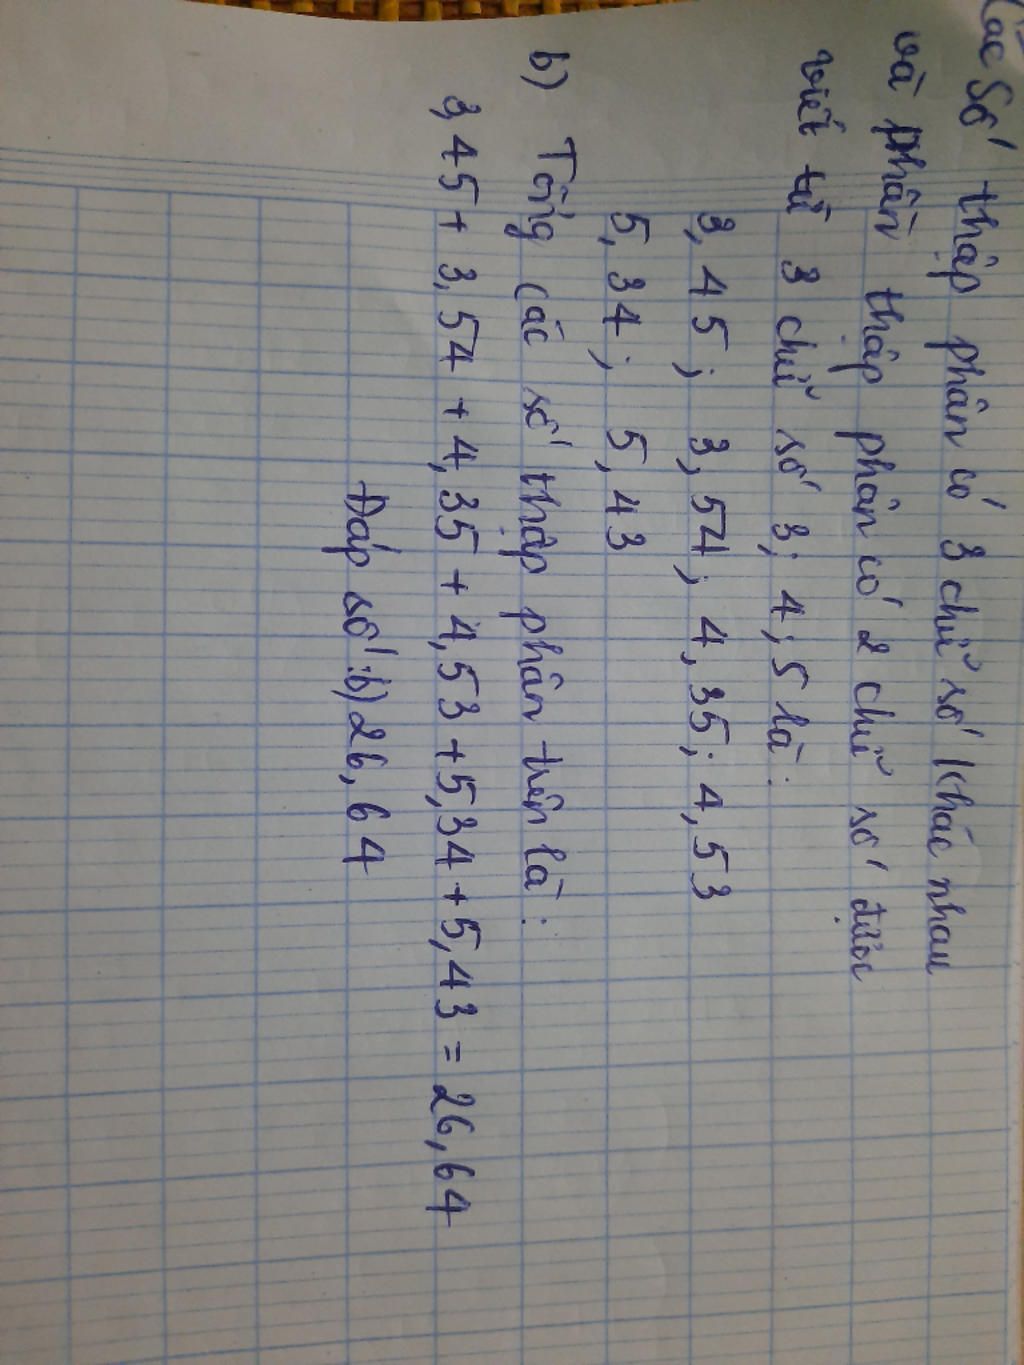 Các số thập phân có 3 chữ số khác nhau
và phần thập phân có 2 chữ số được
viết từ 3 chữ số 3; 4; 5 là:
3,45; 3,54; 4,35; 4,53
5,34; 5,43
b) Tổng các số thập phân trên là:
3,45 + 3,54 + 4,35 + 4,53 + 5,34 + 5,43 = 26,64
Đáp số: b) 26,64